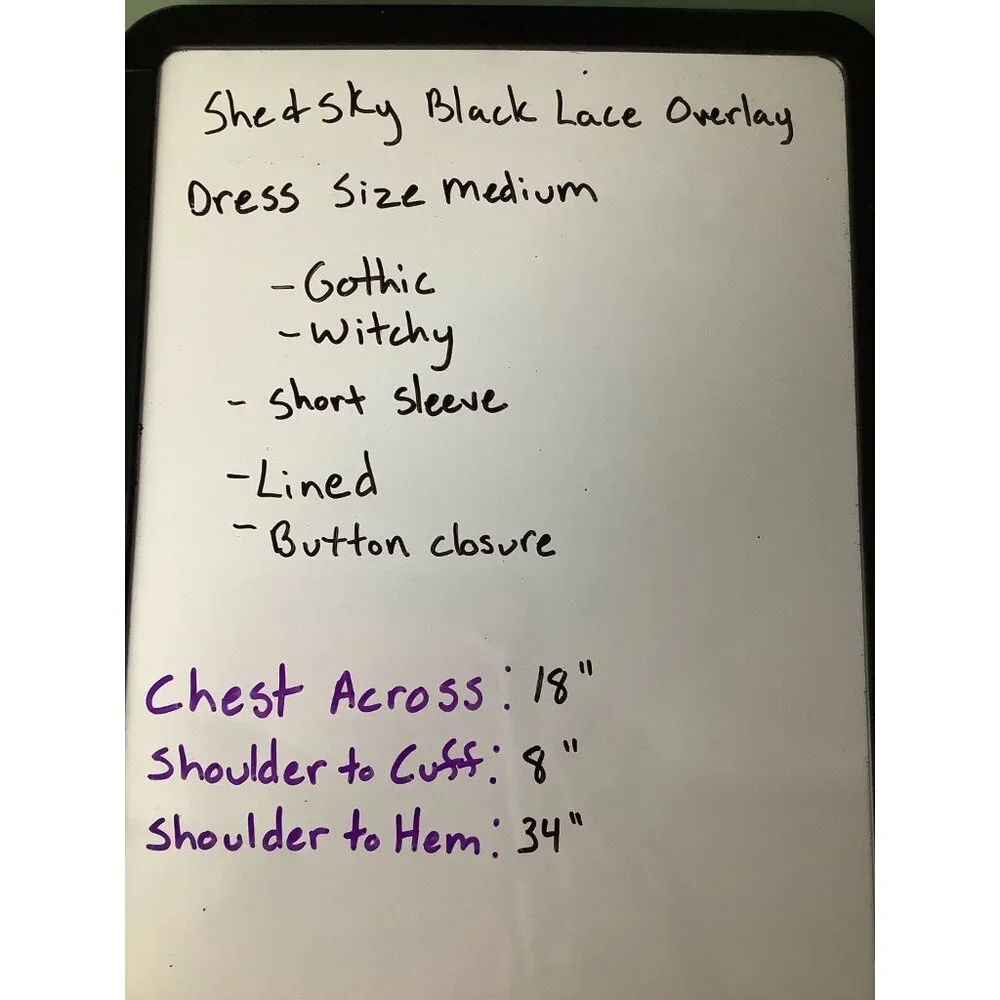 She & Sky Black Lace Overlay
Dress Size Medium
- Gothic
- Witchy
- Short Sleeve
- Lined
- Button closure
Chest Across: 18"
Shoulder to Cuff: 8"
Shoulder to Hem: 34"